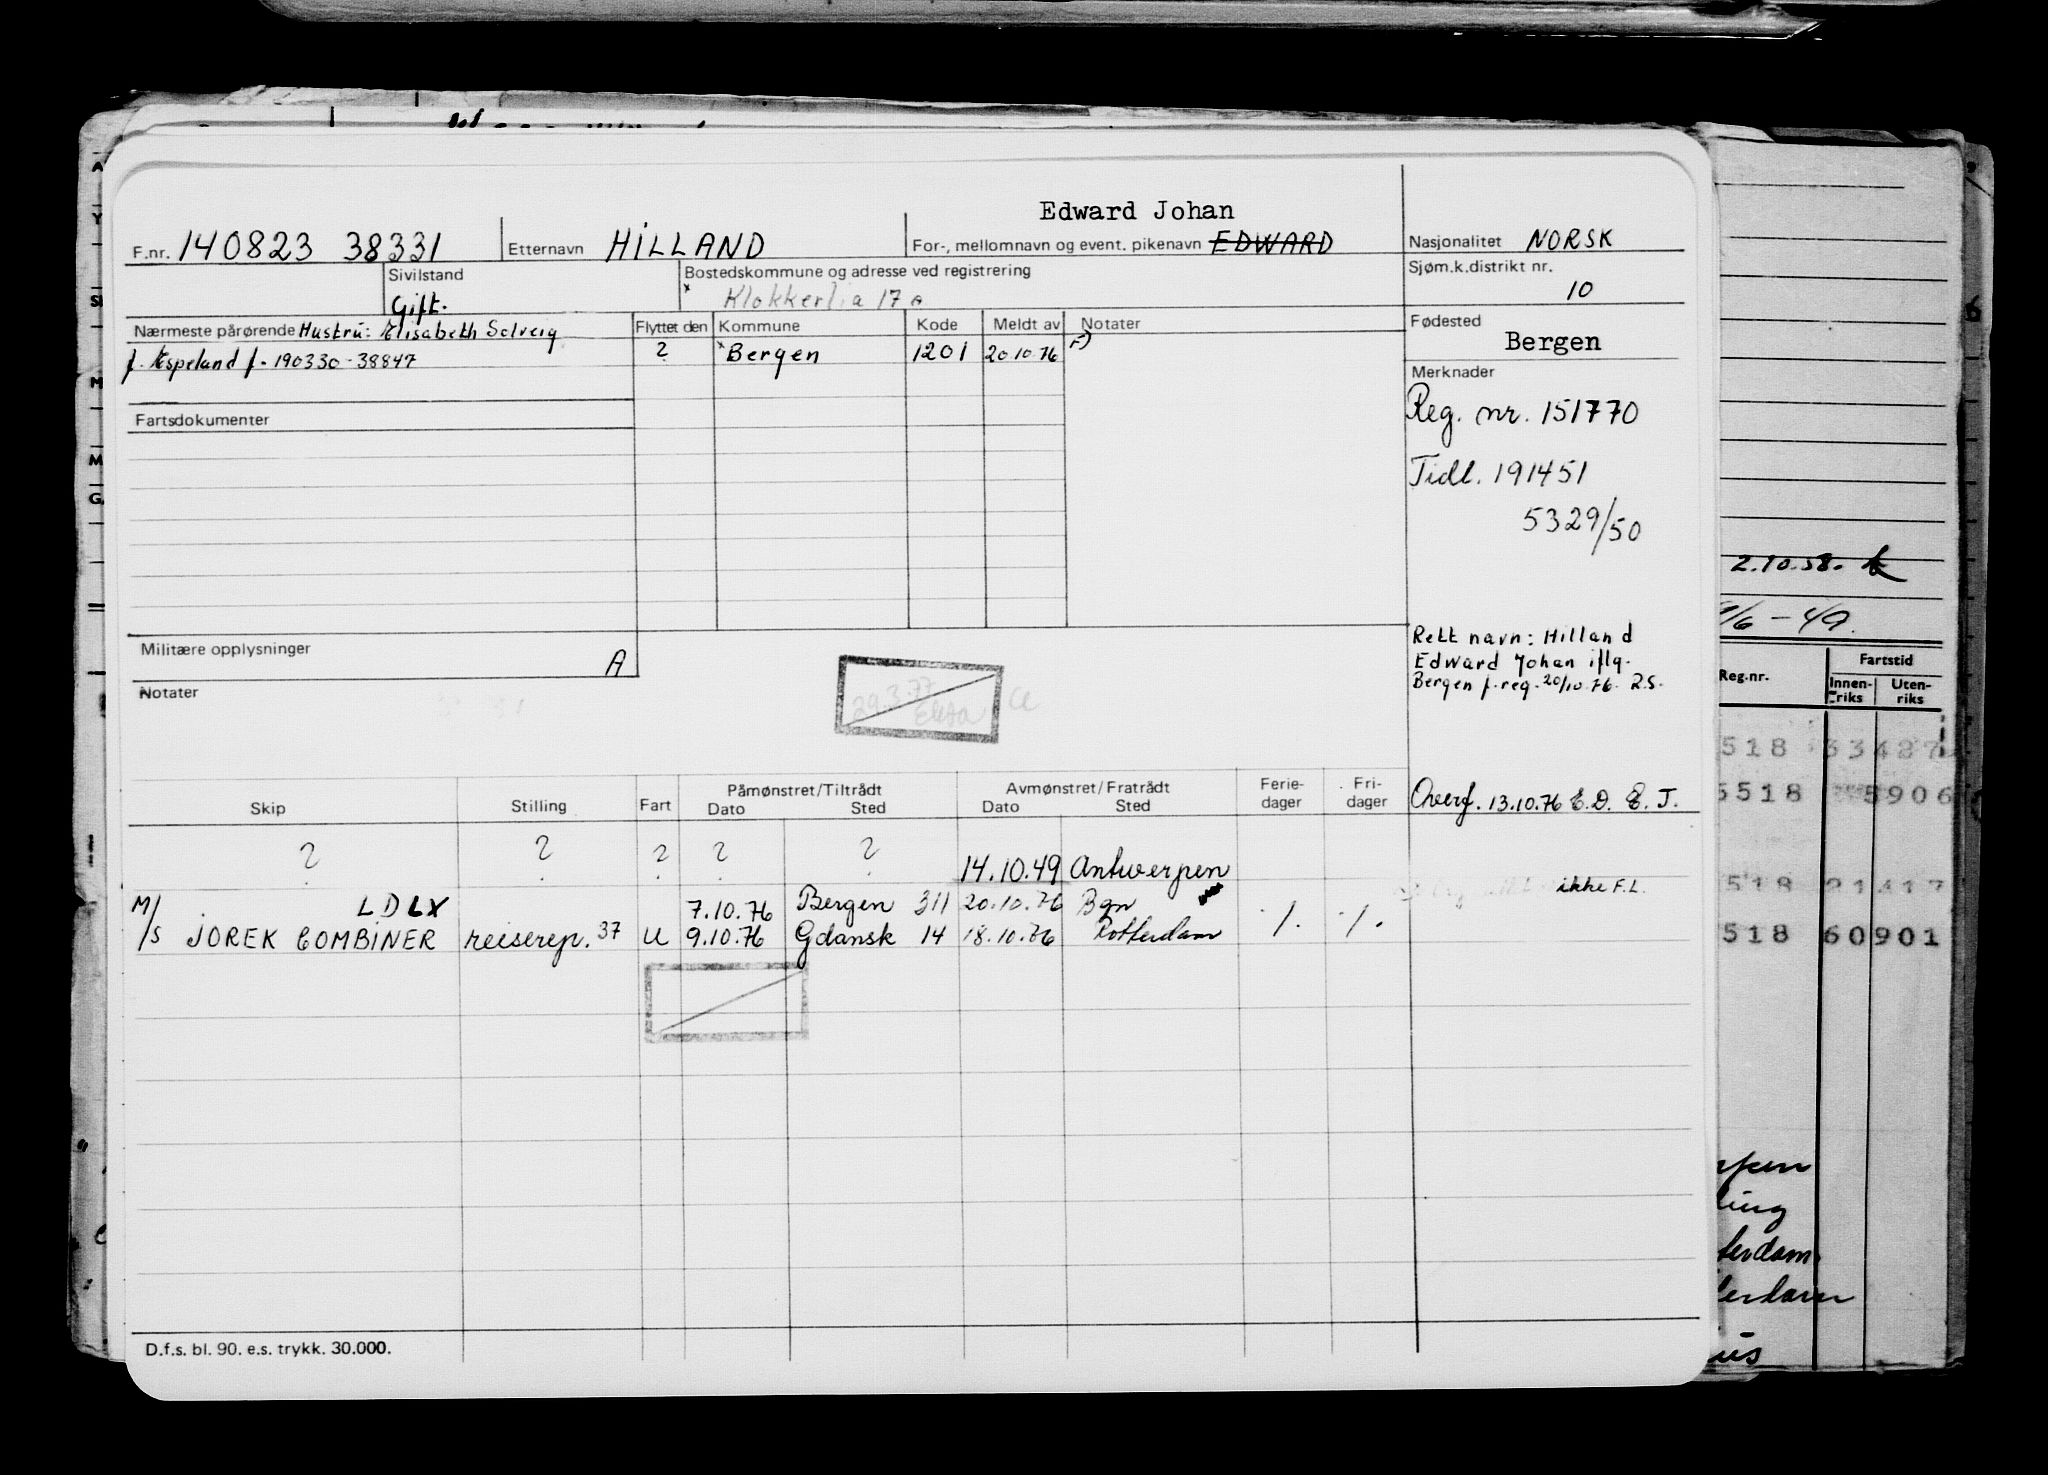 Edward Johan
F.nr. 140823 38331 Etternavn HILLAND For-, mellomnavn og event. pikenavn EDWARD Nasjonalitet NORSK
Sivilstand Bostedskommune og adresse ved registrering Sjøm.k.distrikt nr.
Gift. x Klokkerlia 17 A 10
Nærmeste pårørende Hustru: Elisabeth Solveig Flyttet den Kommune Kode Meldt av Notater Fødested
f. Espeland f. 190330-38847 ? x Bergen 1201 20.10.76 F) Bergen
Merknader
Fartsdokumenter Reg. nr. 151770
Tidl. 191451
5329/50
2.10.58.
/6-49.
Militære opplysninger A
Rett navn: Hilland
Edward Johan iflg.
Bergen f.reg. 20/10.76. R.S.
Notater
29.3.77
Reg.nr. Fartstid
Innenriks Utenriks
518 33427
5518 5906
Skip Stilling Fart Påmønstret/Tiltrådt Avmønstret/Fratrådt Ferie- Fri-
Dato Sted Dato Sted dager dager
Overf. 13.10.76 E.D. E.J.
? ? ? ? ? 14.10.49 Antwerpen
ikke F.L.
518 21417
LDLX 7.10.76 Bergen 311 20.10.76 Bgn
M/S JOREK COMBINER reiserep. 37 U 9.10.76 Gdansk 14 18.10.76 Rotterdam ./. ./.
518 60901
D.f.s. bl. 90. e.s. trykk. 30.000.